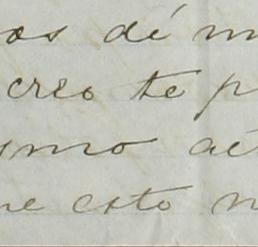 os dé m
creo te p
smo aé
ne esto n